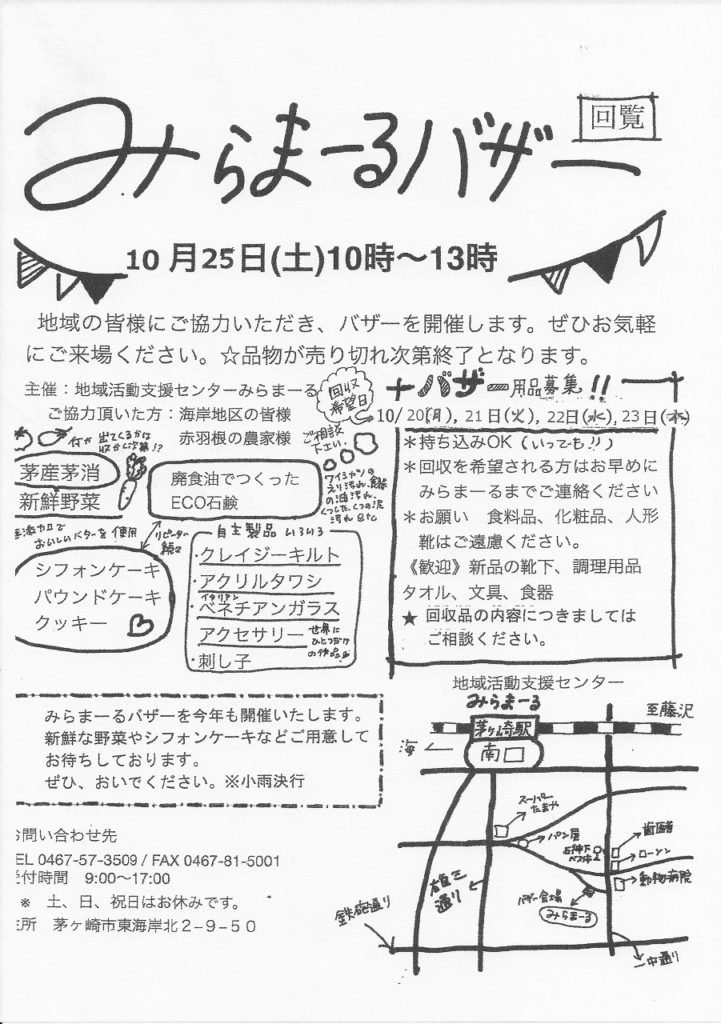 みらまーるバザー
回覧
10月25日(土)10時〜13時
地域の皆様にご協力いただき、バザーを開催します。ぜひお気軽
にご来場ください。☆品物が売り切れ次第終了となります。
主催：地域活動支援センターみらまーる
ご協力頂いた方：海岸地区の皆様
赤羽根の農家様
回収
希望日
ご相談
下さい。
バザー用品募集!!
10/20(月), 21日(火), 22日(水), 23日(木)
＊持ち込みOK（いつでも!!）
＊回収を希望される方はお早めに
みらまーるまでご連絡ください
＊お願い　食料品、化粧品、人形
靴はご遠慮ください。
《歓迎》新品の靴下、調理用品
タオル、文具、食器
★ 回収品の内容につきましては
ご相談ください。
何が出てくるかは
収かく次第!?
茅産茅消
新鮮野菜
廃食油でつくった
ECO石鹸
ワイシャツの
えり汚れ、
の油汚れ、
くつした、くつの泥
汚れ etc
おいしいバターを使用
リピーター
続々
シフォンケーキ
パウンドケーキ
クッキー
自主製品 いろいろ
・クレイジーキルト
・アクリルタワシ
イタリアン
・ベネチアンガラス
・アクセサリー
世界に
ひとつだけ
の作品
・刺し子
みらまーるバザーを今年も開催いたします。
新鮮な野菜やシフォンケーキなどご用意して
お待ちしております。
ぜひ、おいでください。※小雨決行
お問い合わせ先
TEL 0467-57-3509 / FAX 0467-81-5001
受付時間　9:00〜17:00
※　土、日、祝日はお休みです。
住所　茅ヶ崎市東海岸北２-９-５０
地域活動支援センター
みらまーる
至藤沢
茅ヶ崎駅
海
南口
スーパー
たまや
パン屋
石神下
バス停
歯医者
ローソン
動物病院
雄三
通り
バザー会場
みらまーる
鉄砲通り
一中通り